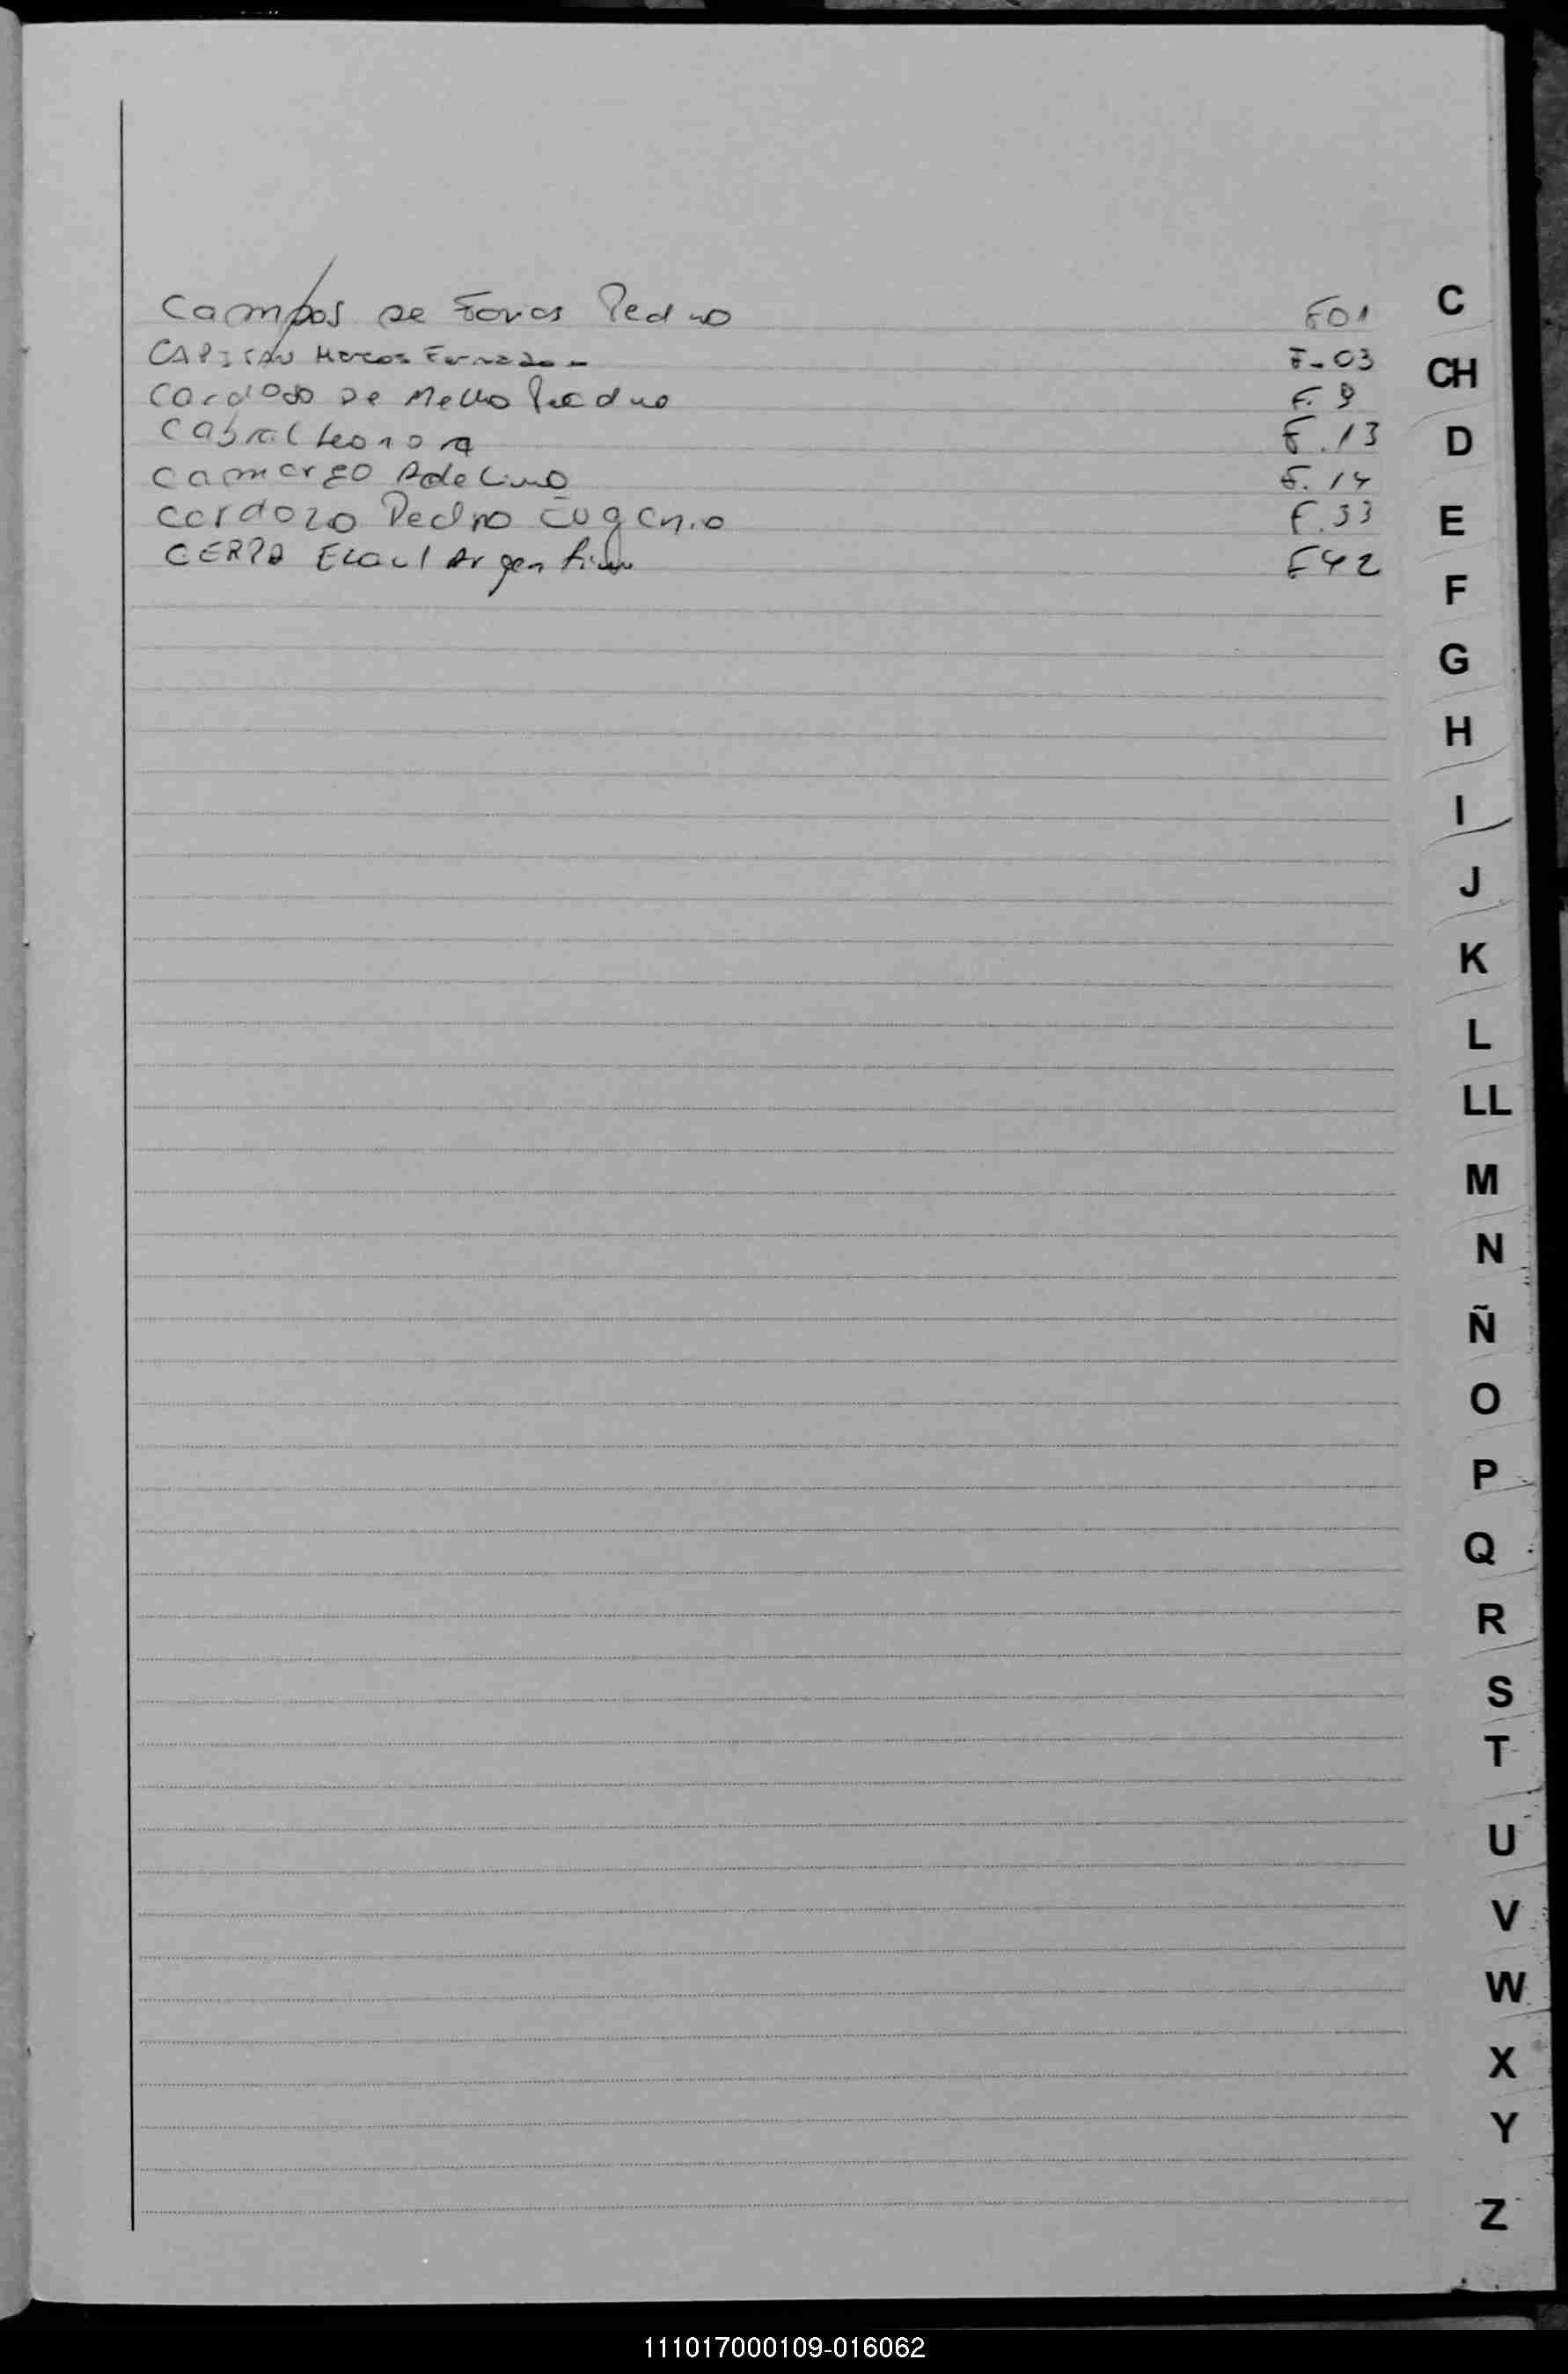 Campos De Farias Pedro F01
CAPITAN Marcos Fernando F-03
Cardoso De Mello Pedro F. 9
Cabral Leonora F.13
Camargo Adelino F. 14
Cardozo Pedro Eugenio F.33
CERPA Argentino F42
C
CH
D
E
F
G
H
I
J
K
L
LL
M
N
Ñ
O
P
Q
R
S
T
U
V
W
X
Y
Z
111017000109-016062